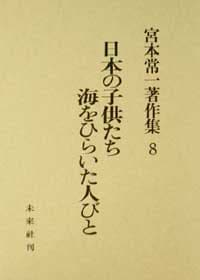 宮本常一著作集 8
日本の子供たち
海をひらいた人びと
未来社刊